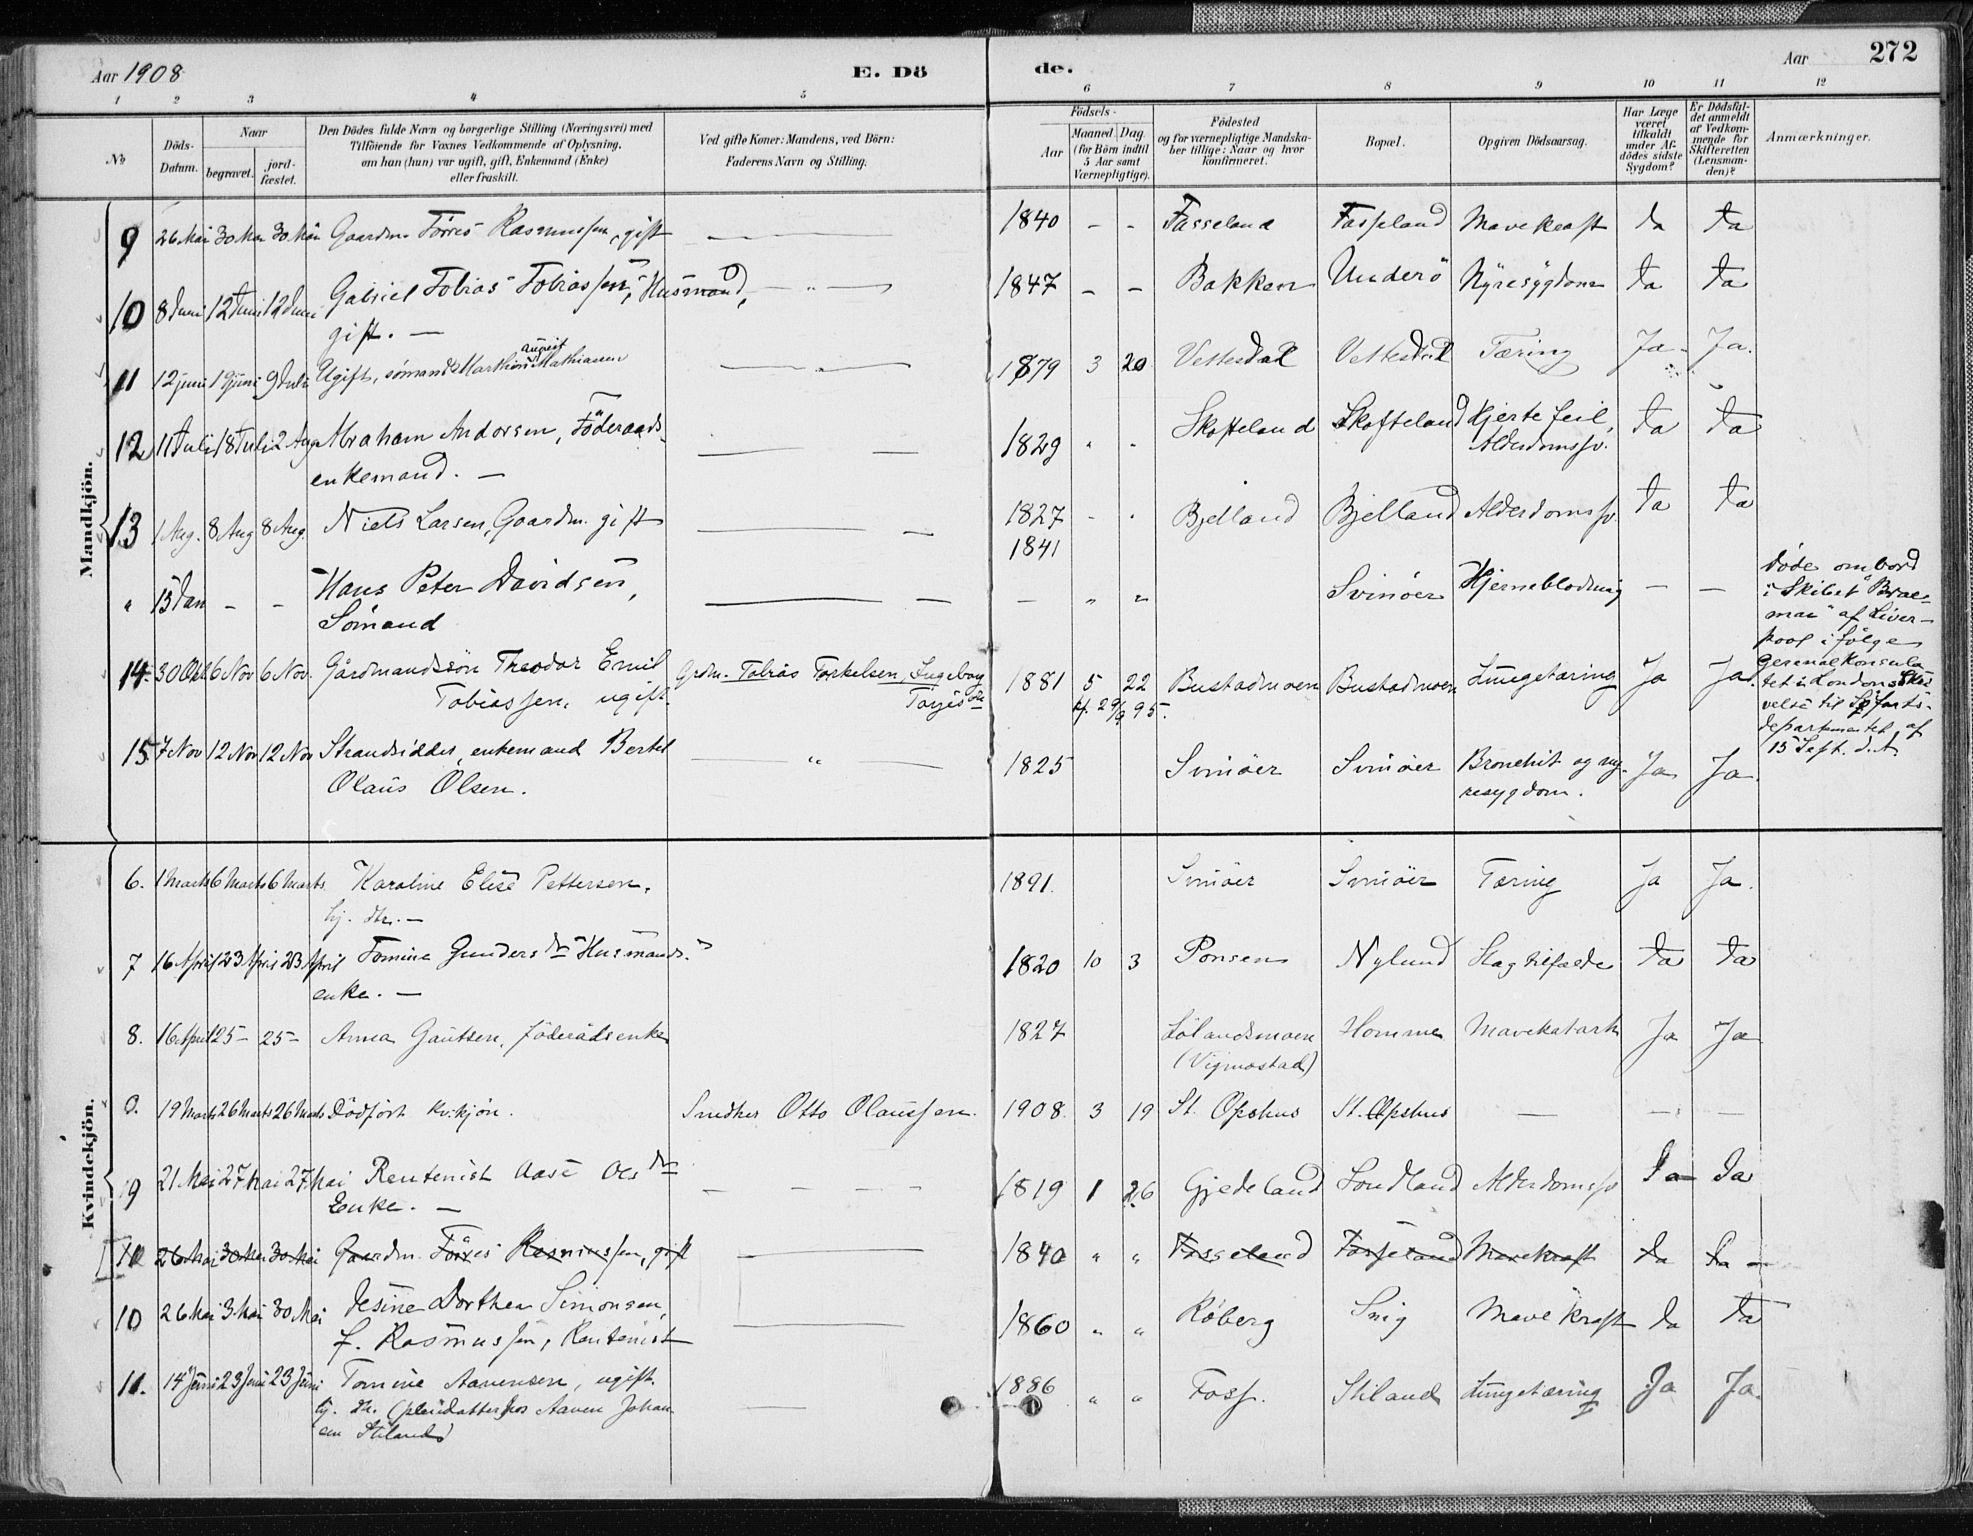 Aar 1908
E. Dö
de.
Aar
272
1 2 3 4 5 6 7 8 9 10 11 12
No
Döds-
Datum.
Naar
begravet.
jord-
fæstet.
Den Dödes fulde Navn og borgerlige Stilling (Næringsvei) med
Tilföiende for Voxnes Vedkommende af Oplysning,
om han (hun) var ugift, gift, Enkemand (Enke)
eller fraskilt.
Ved gifte Koner: Mandens, ved Börn:
Faderens Navn og Stilling.
Födsels-
Aar
Maaned. Dag.
(for Börn indtil
5 Aar samt
Værnepligtige).
Födested
og for værnepligtige Mandska-
ber tillige: Naar og hvor
konfirmeret.
Bopæl.
Opgiven Dödsaarsag.
Har Læge
været
tilkaldt
under Af-
dödes sidste
Sygdom?
Er Dödsfal-
det anmeldt
af Vedkom-
mende for
Skifteretten
(Lensman-
den)?
Anmærkninger.
Mandkjön.
9 26 Mai 30 Mai 30 Mai Gaardm. Törres Rasmussen, gift 1840 - - Fasseland Fasseland Mavekræft Ja Ja
10 8 Juni 12 Juni 12 Juni Gabriel Tobias Tobiassen, Husmand, 1847 - - Bakken Underö Nyresygdom Ja Ja
gift. —
11 12 juni 19 juni 9 Juli Ugift, sømand Mathias august Mathiasen 1879 3 20 Vettesdal Vettesdal Tæring Ja Ja.
12 11 Juli 18 Juli 2 Aug Abraham Andersen, Föderaads- 1829 " - Skofteland Skofteland Hjertefeil,
enkemand. — Alderdomssv. Ja Ja
13 1 Aug. 8 Aug 8 Aug. Niels Larsen, Gaardm. gift 1827 - - Bjelland Bjelland Alderdomssv. Ja Ja
1841
" 15 Jan - - Hans Peter Davidsen, — " " Svinöer Hjerneblödning — —
Sömand
Döde ombord
i Skibet "Brae-
mar" af Liver-
pool ifölge
Generalkonsula
tet i London Skri
velse til Söfarts-
departementet af
15 Sept. d. A.
14. 30 Okt 6 Nov 6 Nov. Gårdmandssön Theodor Emil Grdm. Tobias Torkelsen, Ingeborg 1881 5 22 Bustadmoen Bustadmoen Lungetæring Ja Ja
Tobiassen, ugift. Torjesdtr k. 29/9 95.
15. 7 Nov 12 Nov 12 Nov Strandsidder, enkemand Bertel " 1825 Svinöer Svinöer Bronchit og ny- Ja Ja.
Olaus Olsen. resygdom.
Kvindekjön.
6. 1 Marts 6 Marts 6 Marts Karoline Elise Pettersen, 1891. Svinöer Svinöer Tæring Ja Ja.
hj. dtr. —
7 16 April 23 April 23 April Tomine Gundersdtr Husmands- 1820 10 3 Ponsen Nylund Slagtilfælde Ja Ja
enke. —
8. 16 April 25 - 25 - Anna Gautsen, föderådsenke 1827 Lölandsmoen Homme Mavekatarh Ja Ja
(Vigmostad)
0. 19 Marts 26 Marts 26 Marts Dödfört kv.kjön. Snedker Otto Olaussen. 1908. 3 19 St. Opshus St. Opshus — — —
9 21 Mai 27 Mai 27 Mai Rentenist Aase Olsdtr 1819 1 26 Gjedeland Sondland Alderdomssv Ja Ja
Enke. —
10 26 Mai 30 Mai 30 Mai Gaardm. Törres Rasmussen, gift 1840 " " Fasseland Fasseland Mavekræft Ja Ja —
10 26 Mai 3 Mai 30 Mai Jesine Dorthea Simonsen, 1860 " " Röberg Snig Mavekræft Ja Ja
f. Rasmussen, Rentenist
11. 14 Juni 23 Juni 23 Juni Tomine Aanensen, ugift. 1886 " " Foss. Stiland Lungetæring Ja Ja.
hj. dtr. (pleiedatter hos Aanen Johan
sen Stiland)